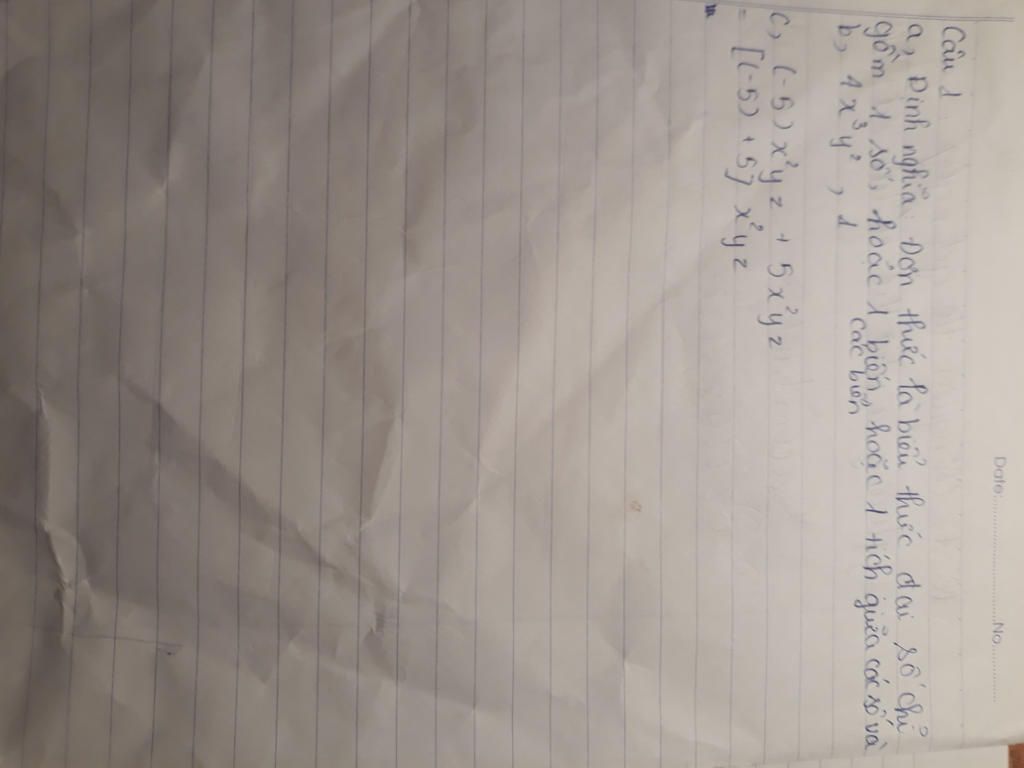 Date:..................No..........
Câu 1
a, Định nghĩa: Đơn thức là biểu thức đại số chỉ
gồm 1 số, hoặc 1 biến, hoặc 1 tích giữa các số và
các biến
b, 1x³y², 1
c, (-5)x²yz + 5x²yz
= [(-5) + 5] x²yz